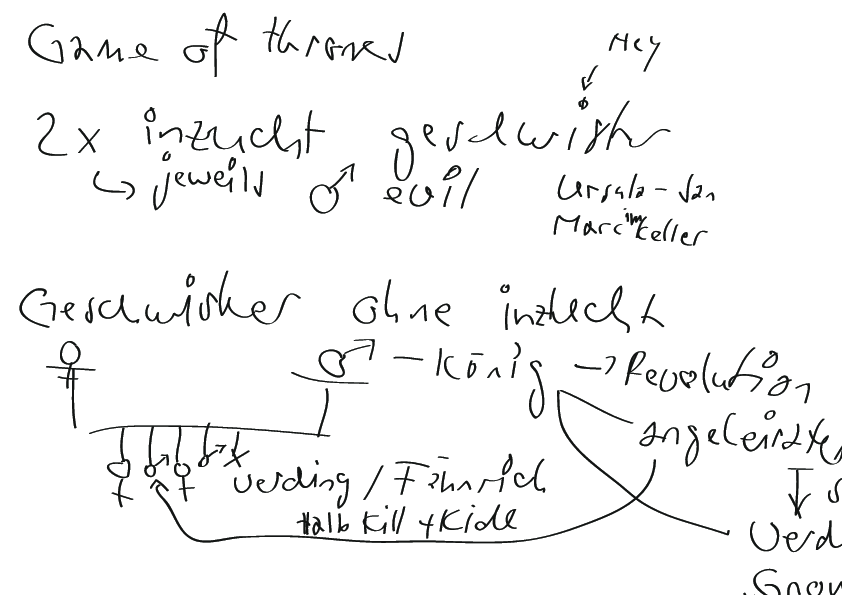 Game of thrones
Hey
2x inzucht geschwister
jeweils ♂ evil
Ursula - Jan
Marc im Keller
Geschwister ohne inzucht
– König → Revolution
Verding / Fähnrich
Halb Kill + Kide
Verd
Snow